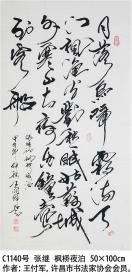 月落乌啼霜满天
江枫渔火对愁眠姑苏城
外寒山寺夜半钟声
到客船
C1140号 张继 枫桥夜泊 50×100cm
作者：王付军，许昌市书法家协会会员。